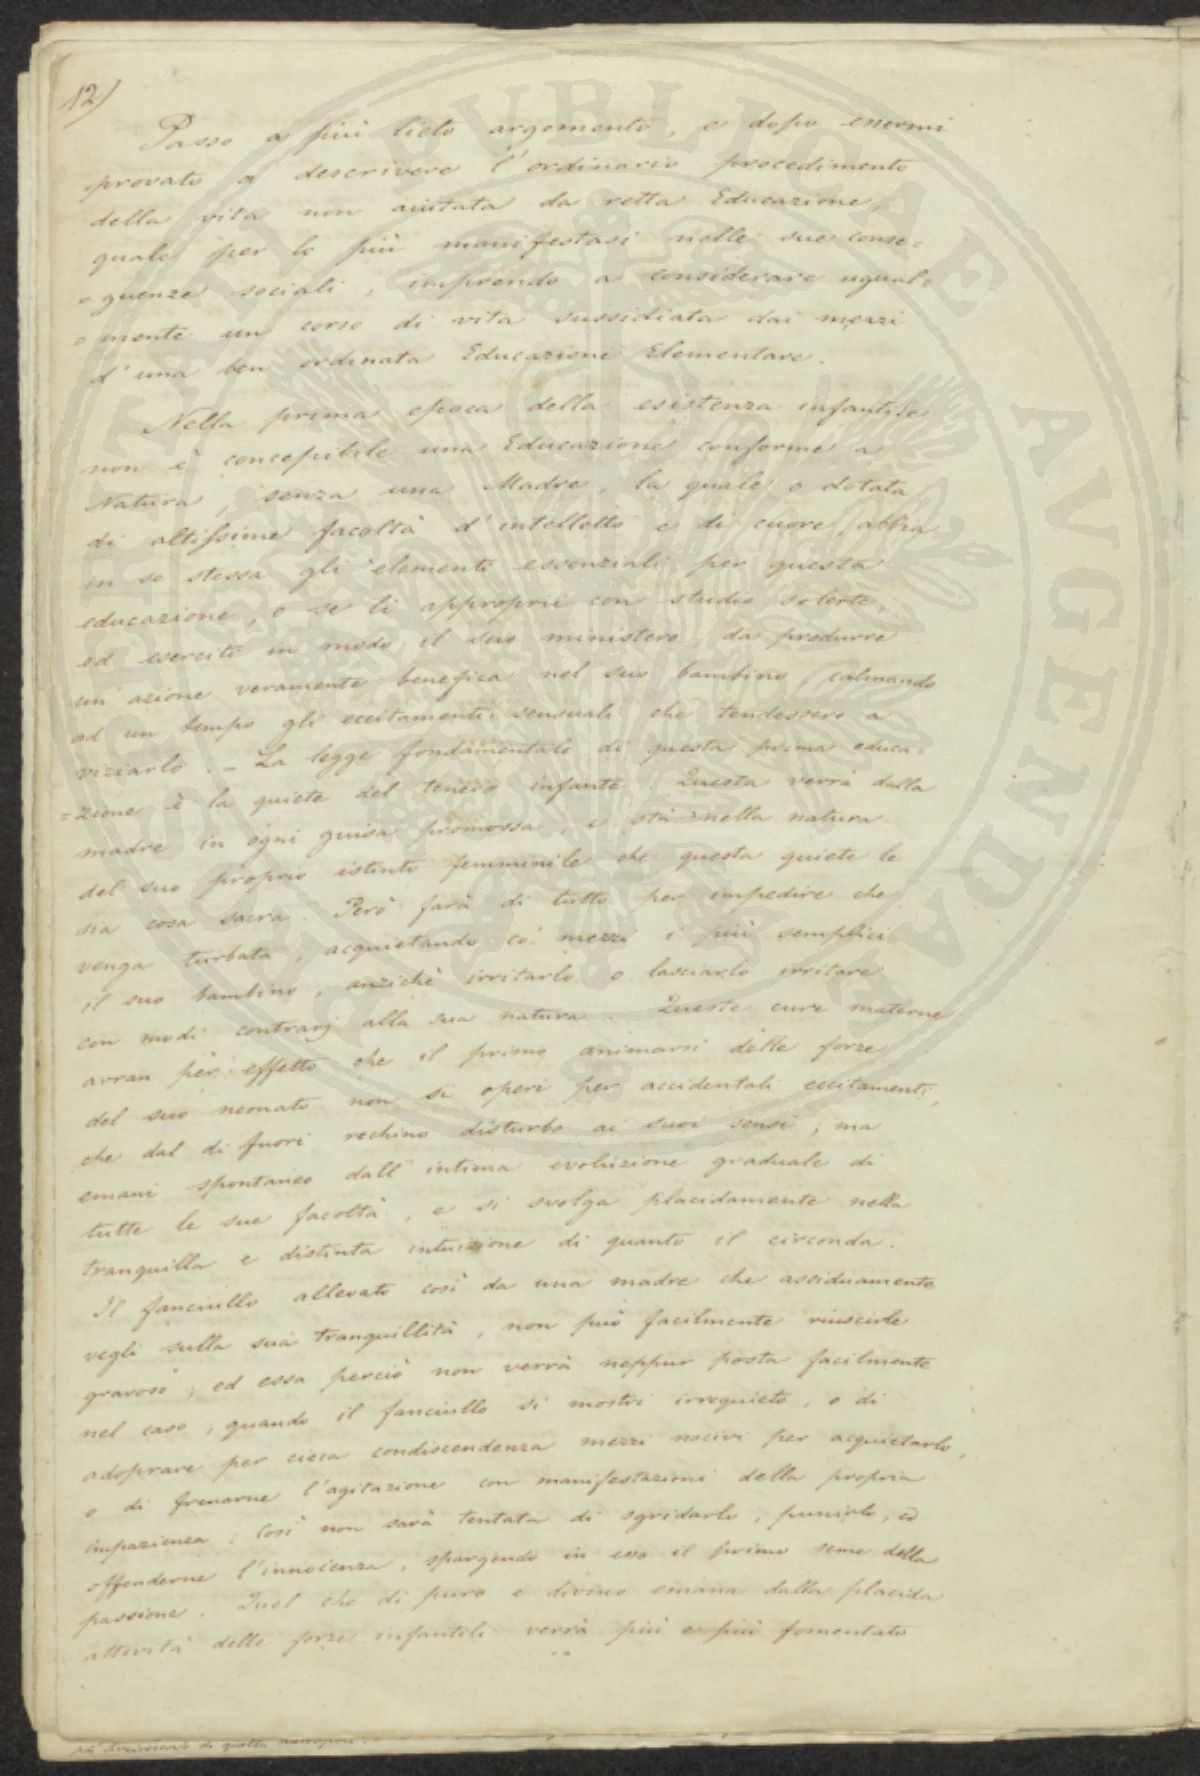 12)
Passo a più lieto argomento, e dopo essermi
provato a descrivere l'ordinario procedimento
della vita non aiutata da retta Educazione,
quale per lo più manifestasi nelle sue conse=
=guenze sociali, imprendo a considerare ugual=
=mente un corso di vita sussidiata dai mezzi
d'una ben ordinata Educazione Elementare.
Nella prima epoca della esistenza infantile
non è concepibile una Educazione conforme a
Natura, senza una Madre, la quale o dotata
di altissime facoltà d'intelletto e di cuore, abbia
in se stessa gli elementi essenziali per questa
educazione, o se li approprii con studio solerte,
ed eserciti in modo il suo ministero, da produrre
un'azione veramente benefica nel suo bambino, calmando
ad un tempo gli eccitamenti sensuali che tendessero a
viziarlo. – La legge fondamentale di questa prima educa=
=zione è la quiete del tenero infante. Questa verrà dalla
madre in ogni guisa promossa, e sta nella natura
del suo proprio istinto femminile che questa quiete le
sia cosa sacra. Però farà di tutto per impedire che
venga turbata, acquietando co' mezzi i più semplici
il suo bambino, anzichè irritarlo o lasciarlo irritare
con modi contrarj alla sua natura. Queste cure materne
avran per effetto che il primo animarsi delle forze
del suo neonato non si operi per accidentali eccitamenti,
che dal di fuori rechino disturbo ai suoi sensi; ma
emani spontaneo dall'intima evoluzione graduale di
tutte le sue facoltà, e si svolga placidamente nella
tranquilla e distinta intuizione di quanto il circonda.
Il fanciullo allevato così da una madre che assiduamente
vegli sulla sua tranquillità, non può facilmente riuscirle
gravoso; ed essa perciò non verrà neppur posta facilmente
nel caso, quando il fanciullo si mostri irrequieto, o di
adoprare per cieca condiscendenza mezzi nocivi per acquietarlo,
o di frenarne l'agitazione con manifestazioni della propria
impazienza. Così non sarà tentata di sgridarlo, punirlo, ed
offenderne l'innocenza, spargendo in esso il primo seme della
passione. Quel che di puro e divino emana dalla placida
attività delle forze infantili verrà più e più fomentato
di quella